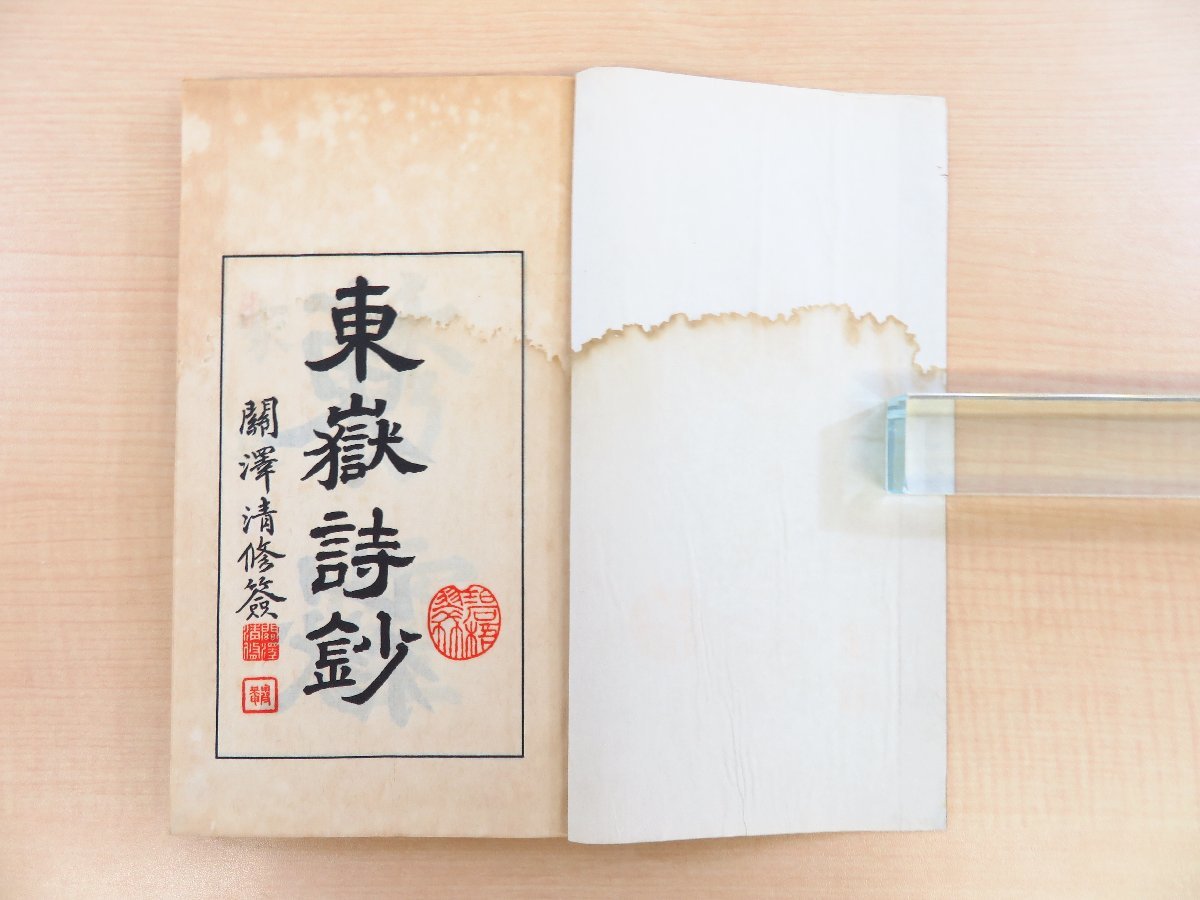 東嶽詩鈔
關澤清修簽